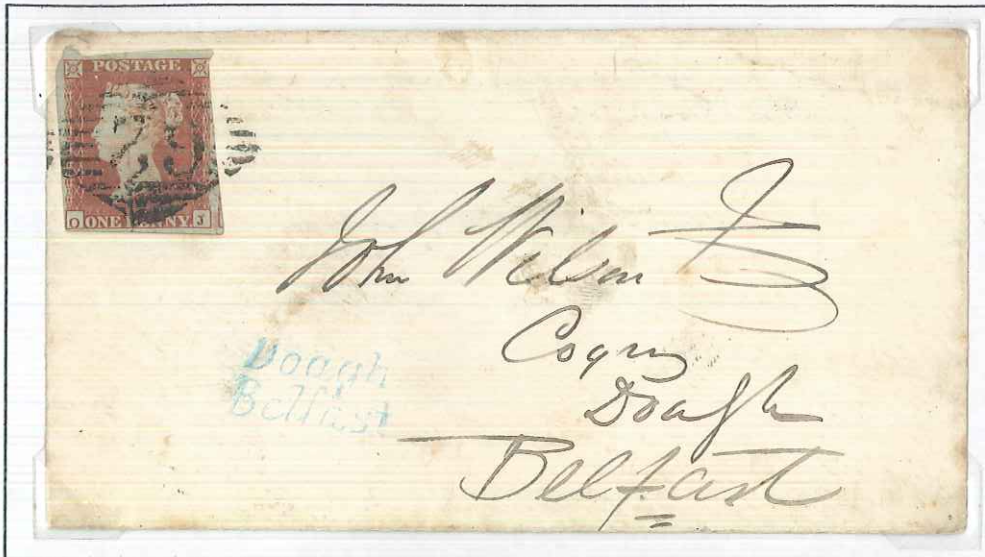 POSTAGE
O ONE PENNY J
John Wilson Esq
Cogry
Doagh
Belfast
Doagh
Belfast